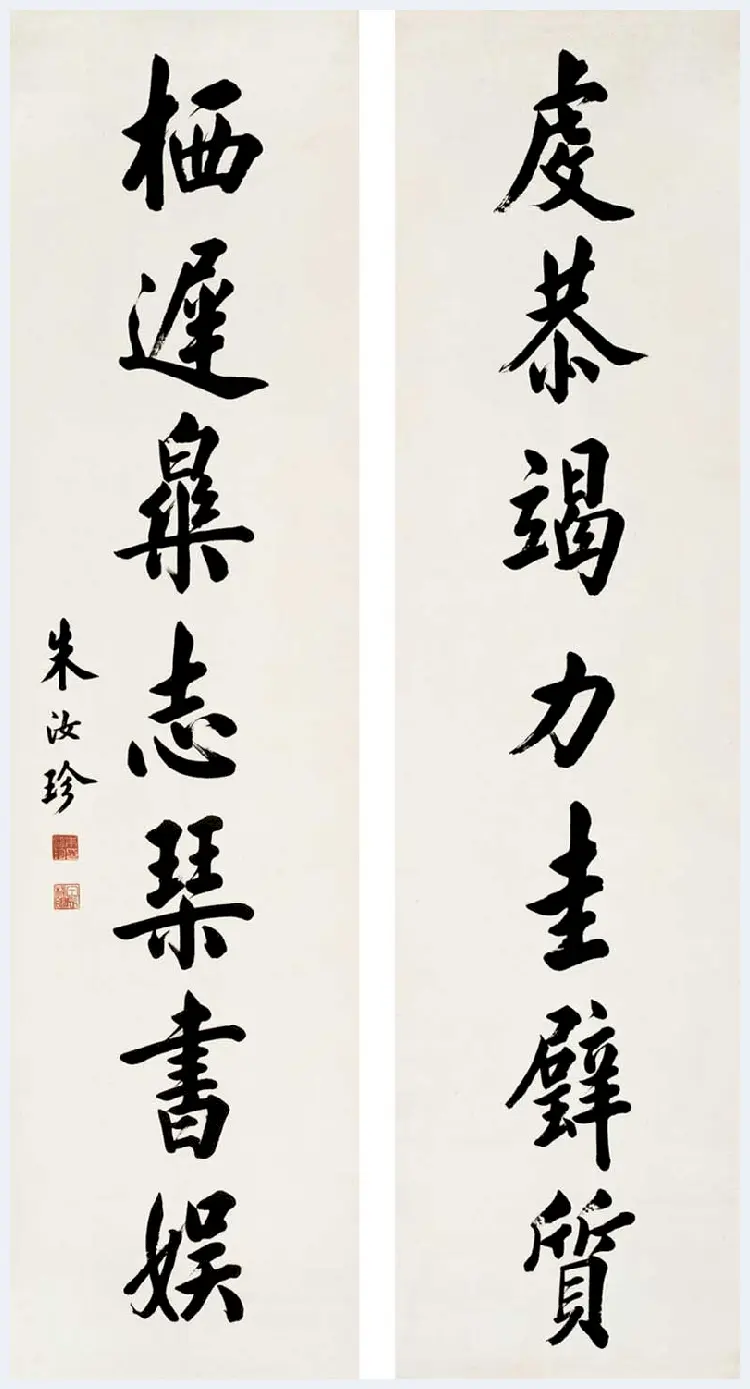 虔恭竭力圭璧質
栖遲臯志琴書娱
朱汝珍